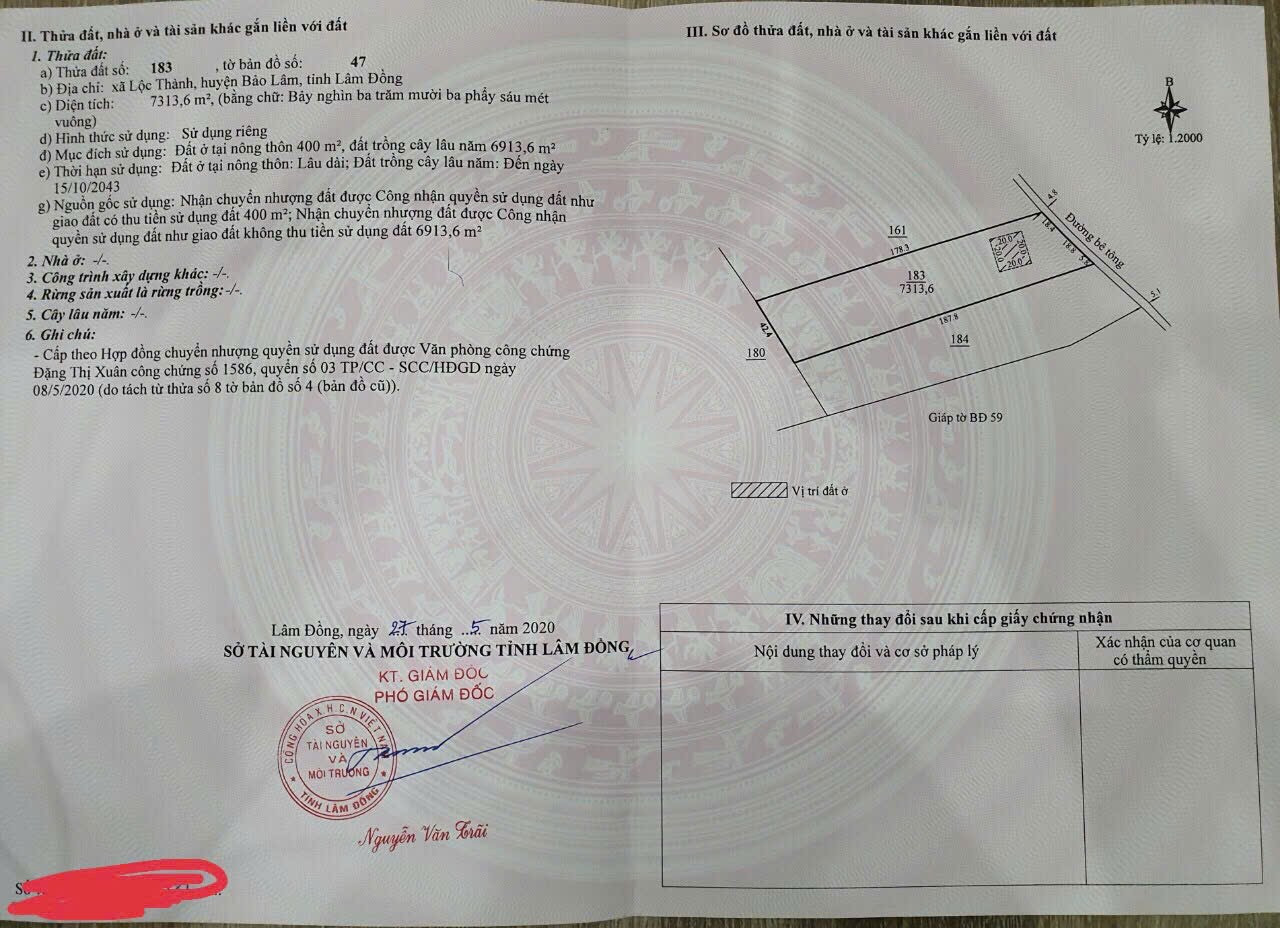 II. Thửa đất, nhà ở và tài sản khác gắn liền với đất
1. Thửa đất:
a) Thửa đất số: 183 , tờ bản đồ số: 47
b) Địa chỉ: xã Lộc Thành, huyện Bảo Lâm, tỉnh Lâm Đồng
c) Diện tích: 7313,6 m², (bằng chữ: Bảy nghìn ba trăm mười ba phẩy sáu mét
vuông)
d) Hình thức sử dụng: Sử dụng riêng
đ) Mục đích sử dụng: Đất ở tại nông thôn 400 m², đất trồng cây lâu năm 6913,6 m²
e) Thời hạn sử dụng: Đất ở tại nông thôn: Lâu dài; Đất trồng cây lâu năm: Đến ngày
15/10/2043
g) Nguồn gốc sử dụng: Nhận chuyển nhượng đất được Công nhận quyền sử dụng đất như
giao đất có thu tiền sử dụng đất 400 m²; Nhận chuyển nhượng đất được Công nhận
quyền sử dụng đất như giao đất không thu tiền sử dụng đất 6913,6 m²
2. Nhà ở: -/-.
3. Công trình xây dựng khác: -/-.
4. Rừng sản xuất là rừng trồng: -/-.
5. Cây lâu năm: -/-.
6. Ghi chú:
- Cấp theo Hợp đồng chuyển nhượng quyền sử dụng đất được Văn phòng công chứng
Đặng Thị Xuân công chứng số 1586, quyển số 03 TP/CC - SCC/HĐGD ngày
08/5/2020 (do tách từ thửa số 8 tờ bản đồ số 4 (bản đồ cũ)).
Lâm Đồng, ngày 27 tháng 5 năm 2020
SỞ TÀI NGUYÊN VÀ MÔI TRƯỜNG TỈNH LÂM ĐỒNG
KT. GIÁM ĐỐC
PHÓ GIÁM ĐỐC
CỘNG HÒA X.H.C.N VIỆT NAM
SỞ
TÀI NGUYÊN
VÀ
MÔI TRƯỜNG
TỈNH LÂM ĐỒNG
Nguyễn Văn Trãi
III. Sơ đồ thửa đất, nhà ở và tài sản khác gắn liền với đất
B
Tỷ lệ: 1.2000
4.8
Đường bê tông
161
178.3
18.4
18.8
5.8
20.0
20.0
20.0
20.0
183
7313,6
5.1
42.4
187.8
180
184
Giáp tờ BĐ 59
Vị trí đất ở
IV. Những thay đổi sau khi cấp giấy chứng nhận
Nội dung thay đổi và cơ sở pháp lý
Xác nhận của cơ quan
có thẩm quyền